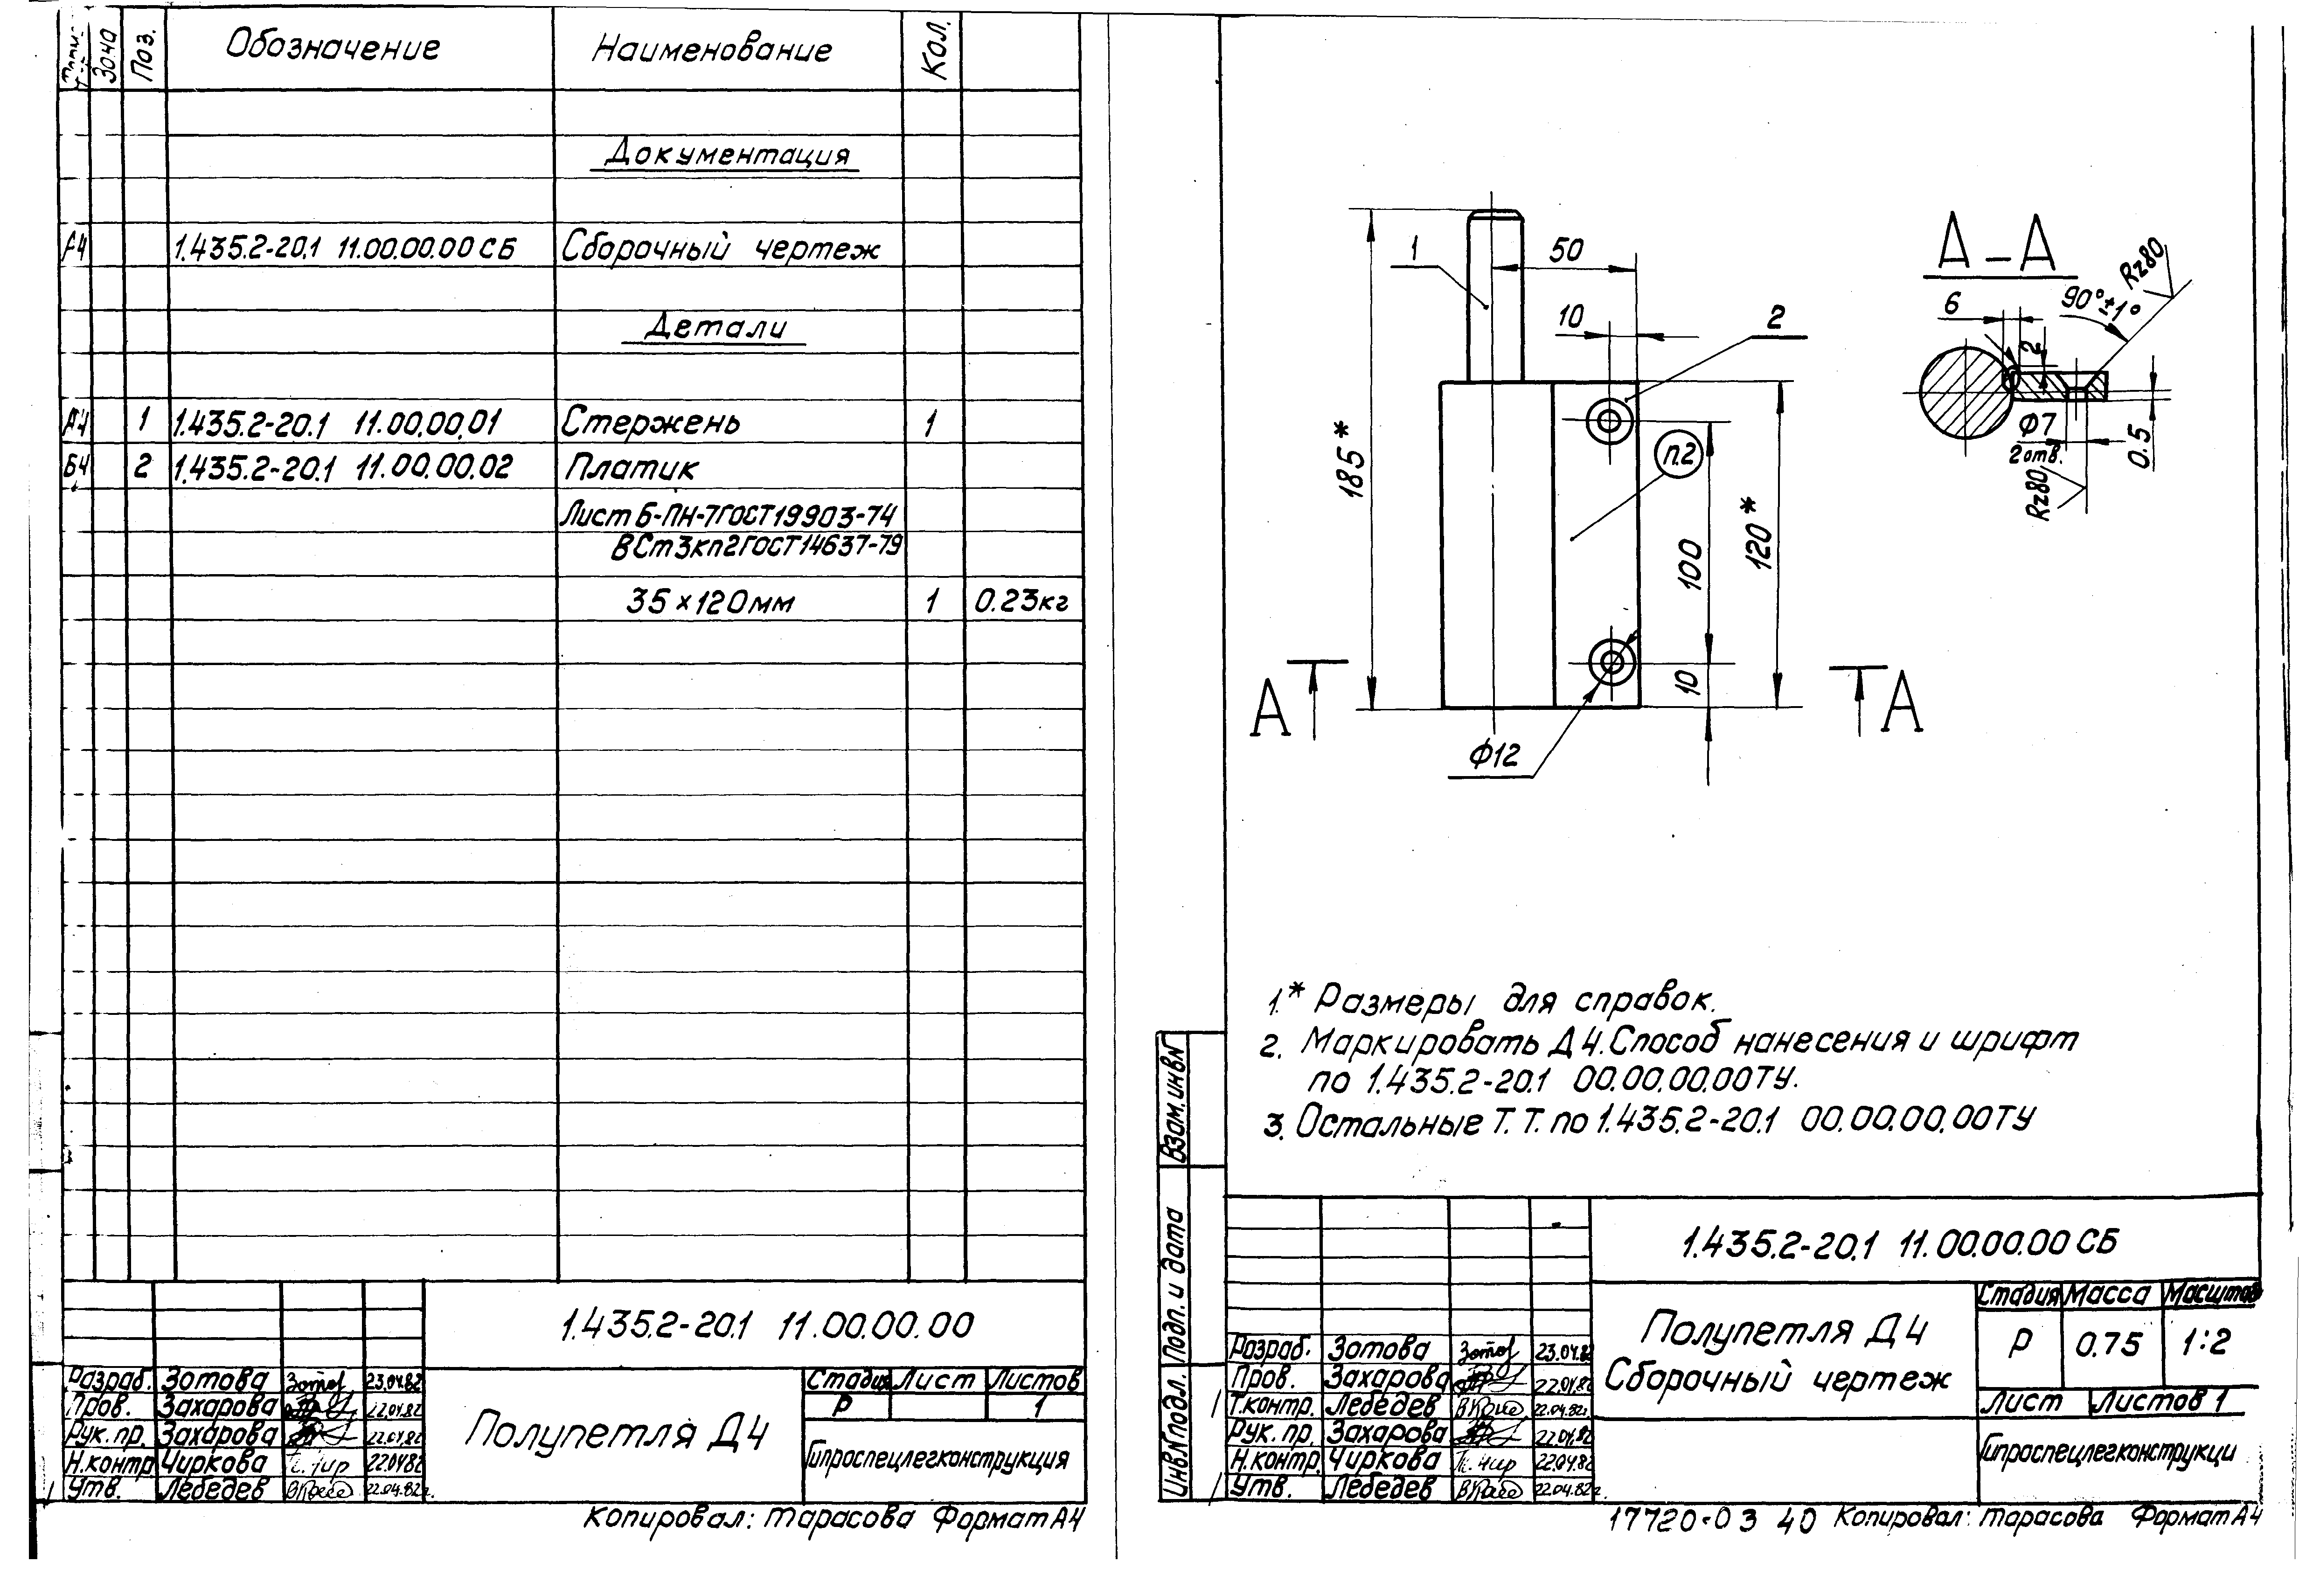 Зона Поз. Обозначение Наименование Кол.
Документация
А4 1.435.2-20.1 11.00.00.00 СБ Сборочный чертеж
Детали
А4 1 1.435.2-20.1 11.00.00.01 Стержень 1
Б4 2 1.435.2-20.1 11.00.00.02 Платик
Лист Б-ПН-7 ГОСТ 19903-74
ВСт3кп2 ГОСТ 14637-79
35×120мм 1 0.23кг
1.435.2-20.1 11.00.00.00
Разраб. Зотова 23.04.82
Пров. Захарова 22.04.82
Рук. пр. Захарова 22.04.82
Н.контр Чиркова 22.04.82
Утв. Лебедев 22.04.82г.
Полупетля Д4
Стадия Лист Листов
Р 1
Гипроспецлегконструкция
Копировал: Тарасова Формат А4
1
50
10
2
185*
п.2
100
120*
10
Ф12
А А
А-А
6
90°±1°
Rz80
2
Ф7
2 отв.
0.5
Rz80
1.* Размеры для справок.
2. Маркировать Д4. Способ нанесения и шрифт
по 1.435.2-20.1 00.00.00.00ТУ.
3. Остальные Т.Т. по 1.435.2-20.1 00.00.00.00ТУ
Взам.инв.N
Подп. и дата
Инв.N подл.
1.435.2-20.1 11.00.00.00 СБ
Разраб. Зотова 23.04.82
Пров. Захарова 22.04.82
Т.контр. Лебедев 22.04.82г.
Рук. пр. Захарова 22.04.82
Н.контр. Чиркова 22.04.82
Утв. Лебедев 22.04.82г.
Полупетля Д4
Сборочный чертеж
Стадия Масса Масштаб
Р 0.75 1:2
Лист Листов 1
Гипроспецлегконструкци
17720-03 40 Копировал: Тарасова Формат А4